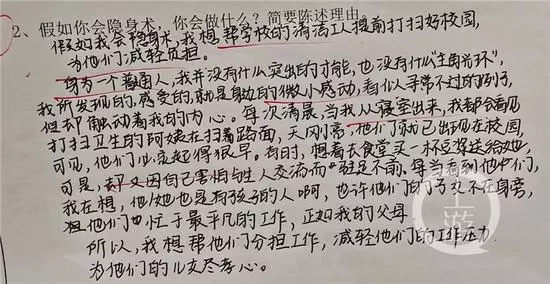 2、假如你会隐身术，你会做什么？简要陈述理由。
假如我会隐身术，我想帮学校的清洁工人提前打扫好校园，
为他们减轻负担。
身为一个普通人，我并没有什么突出的才能，也没有什么“主角光环”，
我所发现的，感受的，就是身边的微小感动，看似寻常不过的例子，
但却触动着我的内心。每次清晨，当我从寝室出来，我都会看见
打扫卫生的阿姨在扫着路面，天刚亮，他们就已出现在校园，
可见，他们必定起得很早。有时，想着去食堂买一杯豆浆送给她，
可是，却又因自己害怕与生人交流而驻足不前。每当看到他/她们，
我在想，他/她也是有孩子的人啊，也许他们的子女不在身旁，
但他们也忙于最平凡的工作，正如我的父母
所以，我想帮他们分担工作，减轻他们的工作压力
为他们的儿女尽孝心。
上游